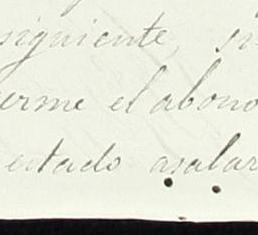 siguiente, si
erme el abono
estado asalar